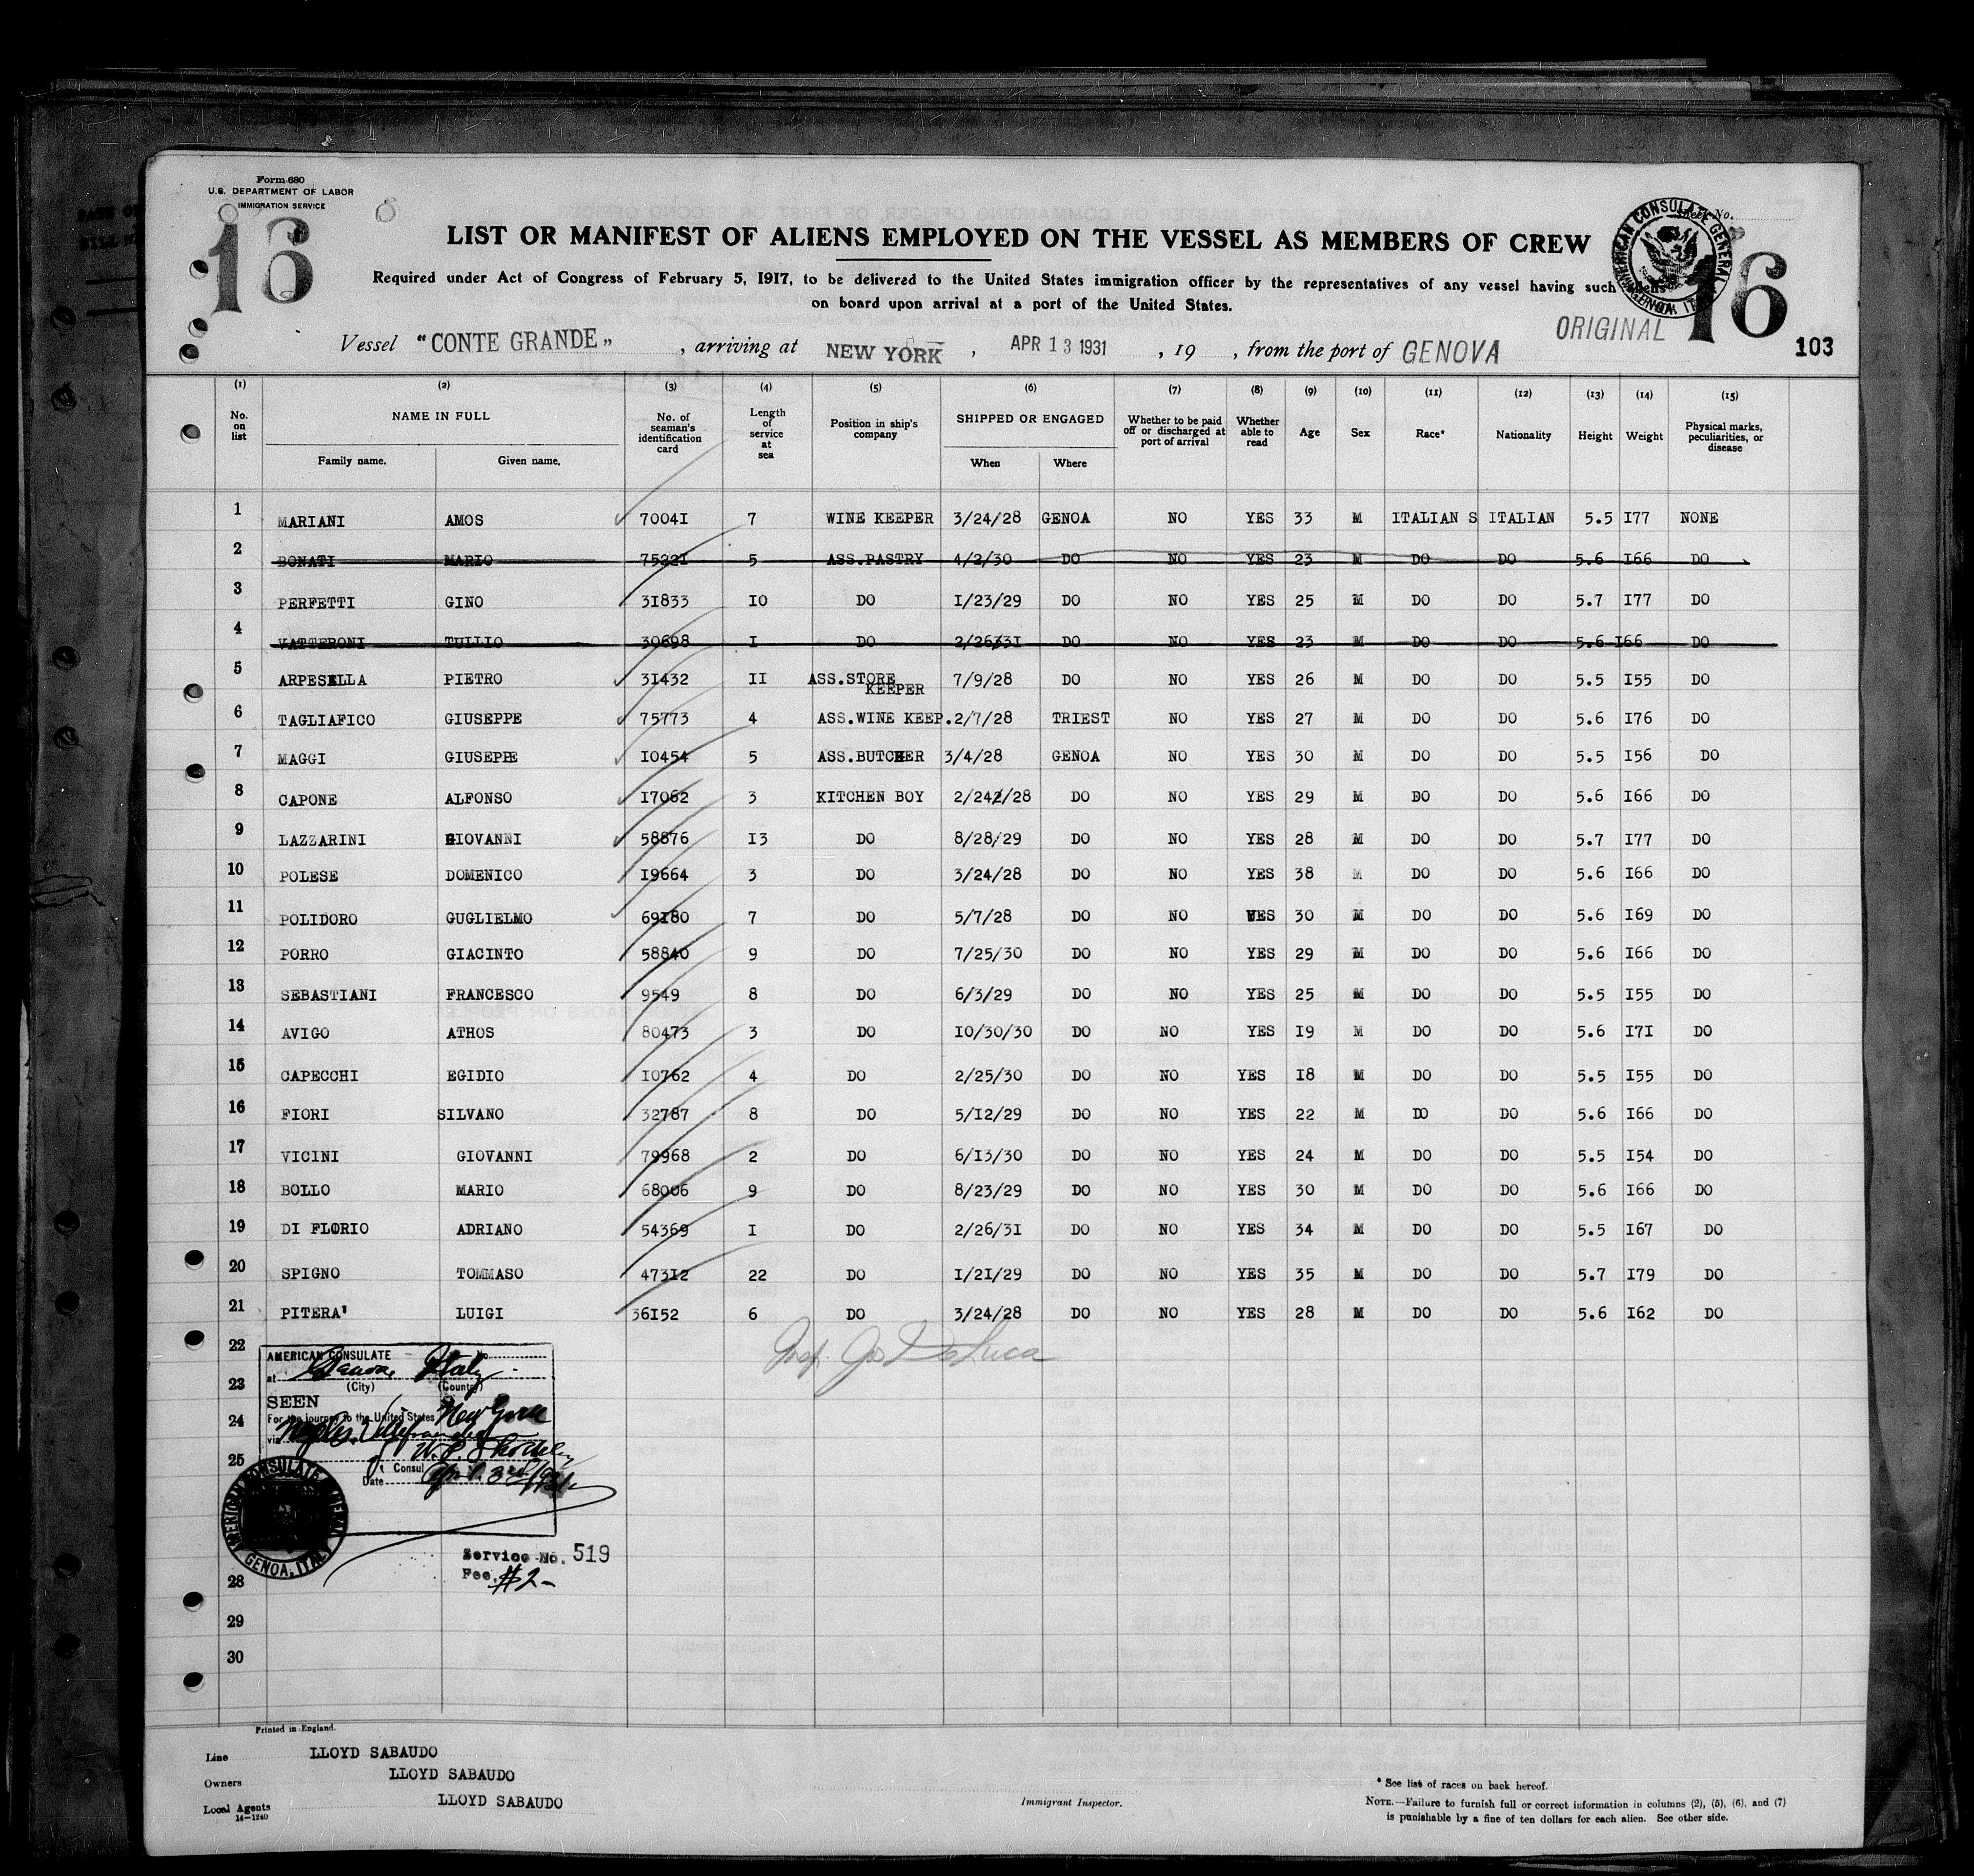 Form 680
U.S. DEPARTMENT OF LABOR
IMMIGRATION SERVICE
16
Sheet No.
AMERICAN CONSULATE GENERAL
GENOA, ITALY
LIST OR MANIFEST OF ALIENS EMPLOYED ON THE VESSEL AS MEMBERS OF CREW
16
Required under Act of Congress of February 5, 1917, to be delivered to the United States immigration officer by the representatives of any vessel having such aliens
on board upon arrival at a port of the United States.
ORIGINAL
Vessel "CONTE GRANDE" , arriving at NEW YORK , APR 13 1931 , 19 , from the port of GENOVA 103
(1) (2) (3) (4) (5) (6) (7) (8) (9) (10) (11) (12) (13) (14) (15)
No. on list NAME IN FULL Family name. Given name. No. of seaman's identification card Length of service at sea Position in ship's company SHIPPED OR ENGAGED When Where Whether to be paid off or discharged at port of arrival Whether able to read Age Sex Race* Nationality Height Weight Physical marks, peculiarities, or disease
1 MARIANI AMOS 7004I 7 WINE KEEPER 3/24/28 GENOA NO YES 33 M ITALIAN S ITALIAN 5.5 I77 NONE
2 BONATI MARIO 7522I 5 ASS.PASTRY 4/2/30 DO NO YES 23 M DO DO 5.6 I66 DO
3 PERFETTI GINO 3I833 IO DO I/23/29 DO NO YES 25 M DO DO 5.7 I77 DO
4 VATTERONI TULLIO 30698 I DO 2/26/3I DO NO YES 23 M DO DO 5.6 I66 DO
5 ARPESELLA PIETRO 3I432 II ASS.STORE KEEPER 7/9/28 DO NO YES 26 M DO DO 5.5 I55 DO
6 TAGLIAFICO GIUSEPPE 75773 4 ASS.WINE KEEP. 2/7/28 TRIEST NO YES 27 M DO DO 5.6 I76 DO
7 MAGGI GIUSEPPE I0454 5 ASS.BUTCHER 3/4/28 GENOA NO YES 30 M DO DO 5.5 I56 DO
8 CAPONE ALFONSO I7062 3 KITCHEN BOY 2/24/28 DO NO YES 29 M DO DO 5.6 I66 DO
9 LAZZARINI GIOVANNI 58876 I3 DO 8/28/29 DO NO YES 28 M DO DO 5.7 I77 DO
10 POLESE DOMENICO I9664 3 DO 3/24/28 DO NO YES 38 M DO DO 5.6 I66 DO
11 POLIDORO GUGLIELMO 69I80 7 DO 5/7/28 DO NO YES 30 M DO DO 5.6 I69 DO
12 PORRO GIACINTO 58840 9 DO 7/25/30 DO NO YES 29 M DO DO 5.6 I66 DO
13 SEBASTIANI FRANCESCO 9549 8 DO 6/3/29 DO NO YES 25 M DO DO 5.5 I55 DO
14 AVIGO ATHOS 80473 3 DO I0/30/30 DO NO YES I9 M DO DO 5.6 I7I DO
15 CAPECCHI EGIDIO I0762 4 DO 2/25/30 DO NO YES I8 M DO DO 5.5 I55 DO
16 FIORI SILVANO 32787 8 DO 5/I2/29 DO NO YES 22 M DO DO 5.6 I66 DO
17 VICINI GIOVANNI 79968 2 DO 6/I3/30 DO NO YES 24 M DO DO 5.5 I54 DO
18 BOLLO MARIO 68006 9 DO 8/23/29 DO NO YES 30 M DO DO 5.6 I66 DO
19 DI FLORIO ADRIANO 54369 I DO 2/26/3I DO NO YES 34 M DO DO 5.5 I67 DO
20 SPIGNO TOMMASO 473I2 22 DO I/2I/29 DO NO YES 35 M DO DO 5.7 I79 DO
21 PITERA' LUIGI 36I52 6 DO 3/24/28 DO NO YES 28 M DO DO 5.6 I62 DO
22
23
24
25
28
29
30
AMERICAN CONSULATE No.
at Genoa, Italy
(City) (Country)
SEEN
For the journey to the United States New York
via Naples, Villefranche
Consul
Date April 3rd 1931
AMERICAN CONSULATE GENERAL
GENOA, ITALY
Service No. 519
Fee, $2-
Jos. De Luca
Printed in England.
Line LLOYD SABAUDO
Owners LLOYD SABAUDO
Local Agents LLOYD SABAUDO
14-1240
Immigrant Inspector.
* See list of races on back hereof.
NOTE.—Failure to furnish full or correct information in columns (2), (5), (6), and (7)
is punishable by a fine of ten dollars for each alien. See other side.